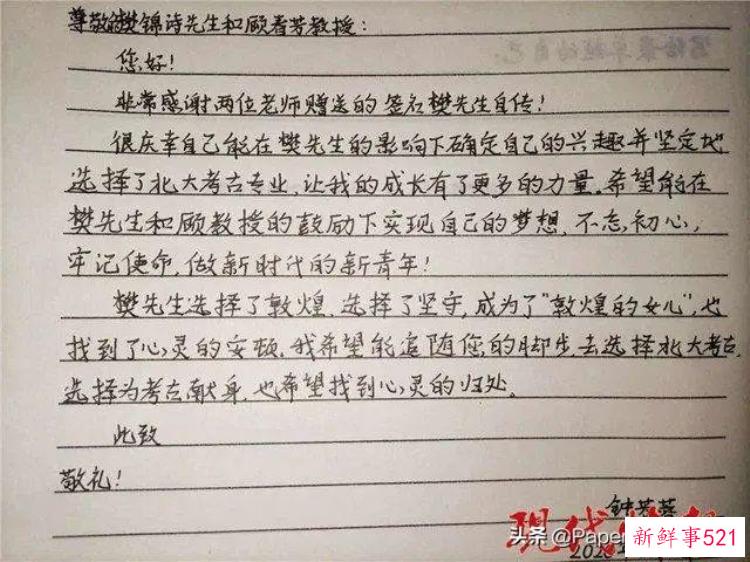 尊敬的樊锦诗先生和顾春芳教授：
您好！
非常感谢两位老师赠送的签名樊先生自传！
很庆幸自己能在樊先生的影响下确定自己的兴趣并坚定地
选择了北大考古专业，让我的成长有了更多的力量。希望能在
樊先生和顾教授的鼓励下实现自己的梦想，不忘初心，
牢记使命，做新时代的新青年！
樊先生选择了敦煌，选择了坚守，成为了“敦煌的女儿”，也
找到了心灵的安顿。我希望能追随您的脚步，去选择北大考古，
选择为考古献身，也希望找到心灵的归处。
此致
敬礼！
钟芳蓉
现代
头条 @Paper
新鲜事521